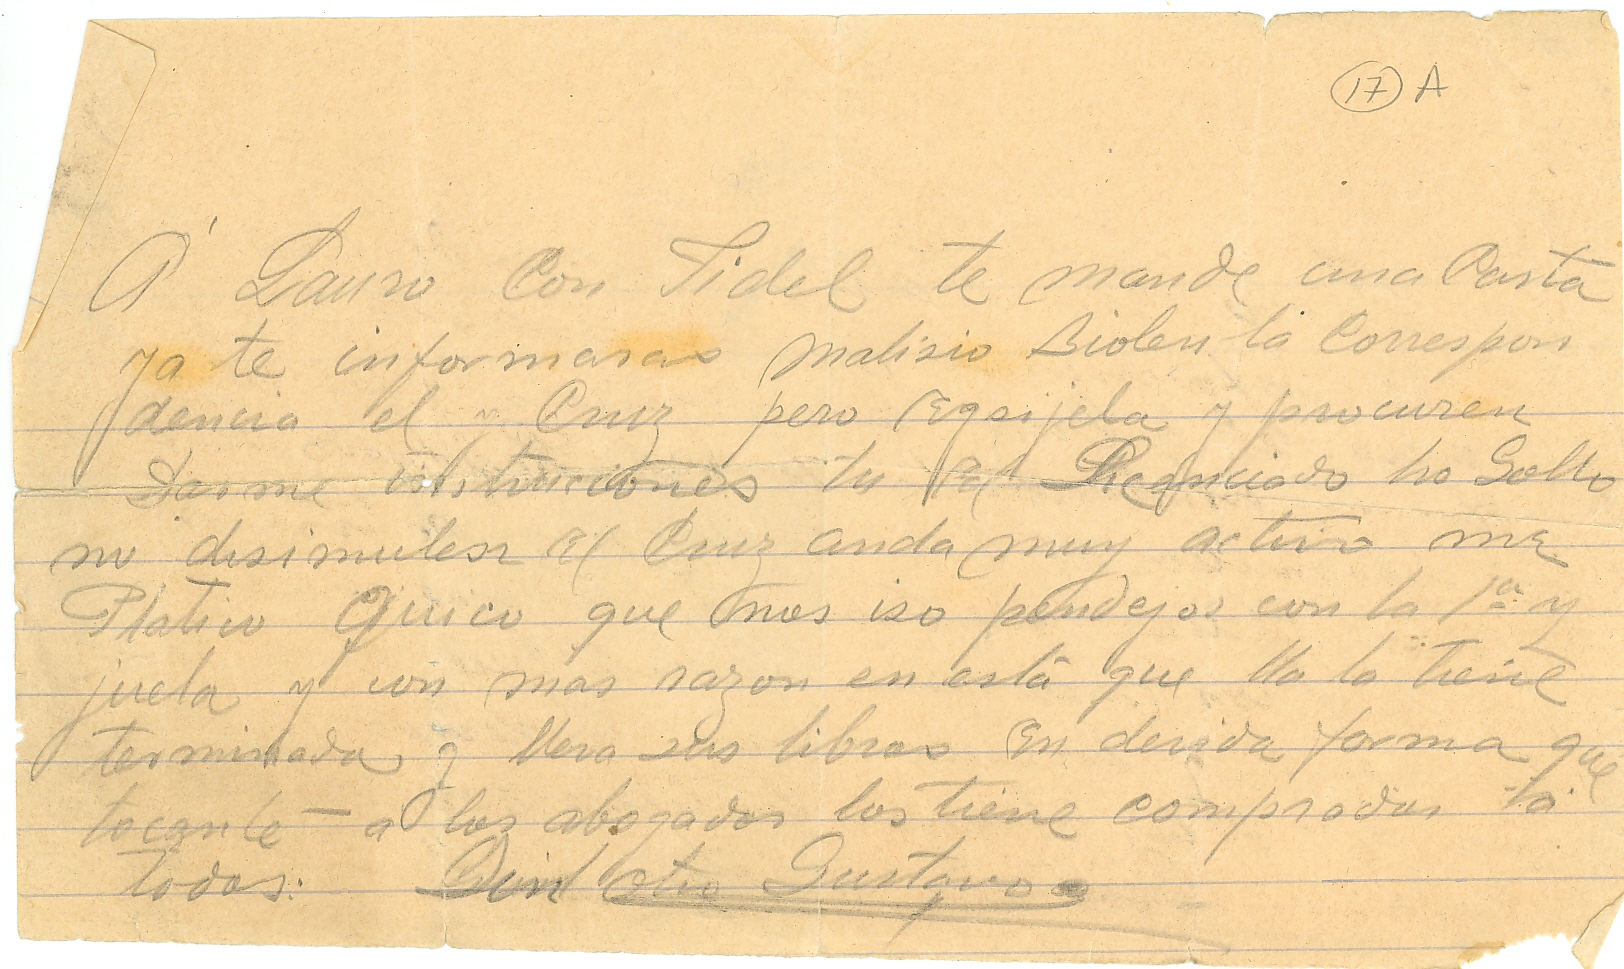 17 A
A' Lauro Con Fidel te mande una Carta
ya te informaras malisio Biolen la Correspon
dencia el Cruz pero Eqsijela y procuren
Darme instruciones tu El Licenciado ho Golto
no disimulen El Cruz anda muy activo me
Platico Quico que nos iso pendejos con la 1a y
juela y con mas razon en está que lla la tiene
terminada y lleva sus libros En devida forma que
tocante - a los abogados los tiene comprados a
todos: otro Gustavo